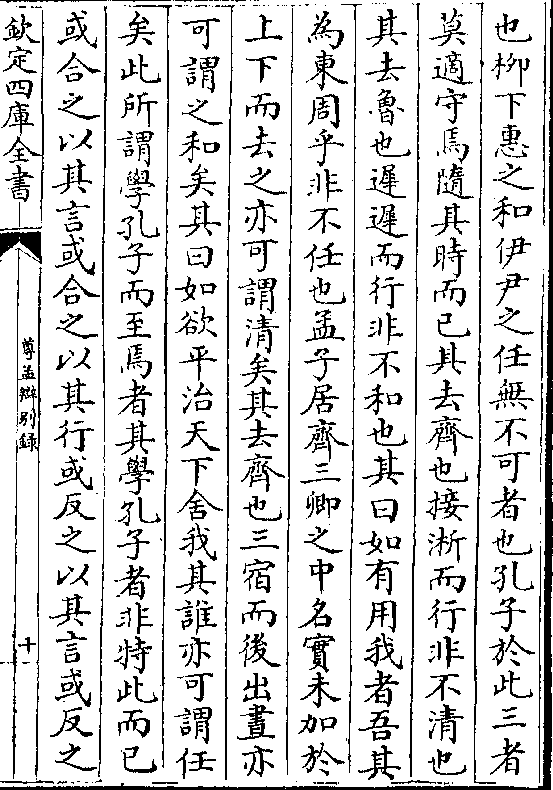 也柳下惠之和伊尹之任無不可者也孔子於此三者
莫適守焉隨其時而已其去齊也接淅而行非不清也
其去魯也遲遲而行非不和也其曰如有用我者吾其
為東周乎非不任也孟子居齊三卿之中名實未加於
上下而去之亦可謂清矣其去齊也三宿而後出晝亦
可謂之和矣其曰如欲平治天下舍我其誰亦可謂任
矣此所謂學孔子而至焉者其學孔子者非特此而已
或合之以其言或合之以其行或反之以其言或反之
欽定四庫全書
尊孟辯別錄
十